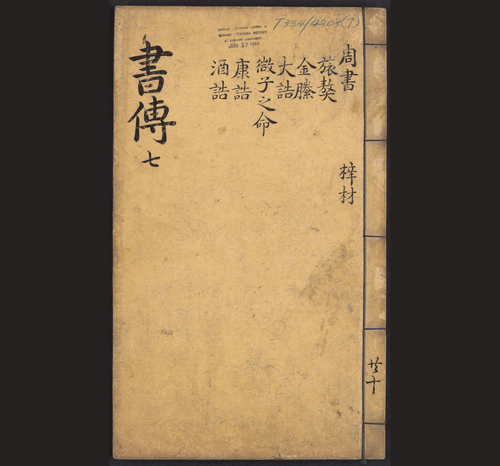 T334/4203(7)
JUN 17
周書
旅獒
金縢
大誥
微子之命
康誥
酒誥
梓材
書傳
七
共十